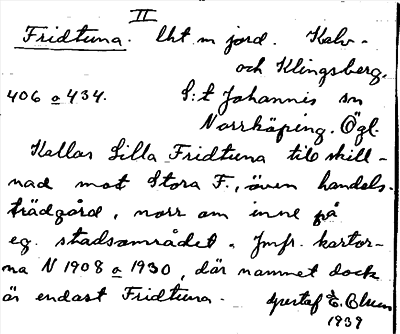 II
Fridtuna. Lht m jord. Kalv-
och Klingsberg.
406 a 434. S:t Johannis sn
Norrköping. Ögl.
Kallas Lilla Fridtuna till skill-
nad mot Stora F., även handels-
trädgård, norr om inne på
eg. stadsområdet. Jmfr. kartor-
na N 1908 a 1930, där namnet dock
är endast Fridtuna. Gustaf E.
1939